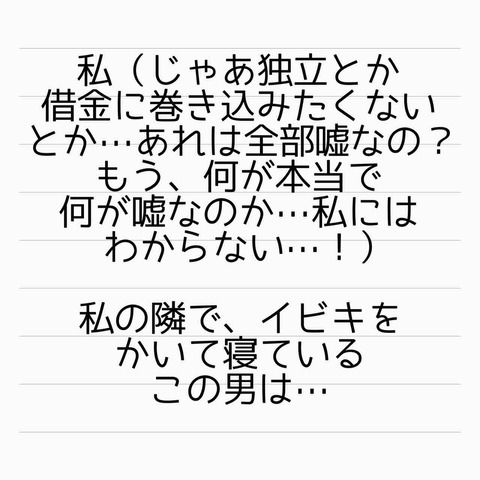 私（じゃあ独立とか
借金に巻き込みたくない
とか…あれは全部嘘なの？
もう、何が本当で
何が嘘なのか…私には
わからない…！）
私の隣で、イビキを
かいて寝ている
この男は…